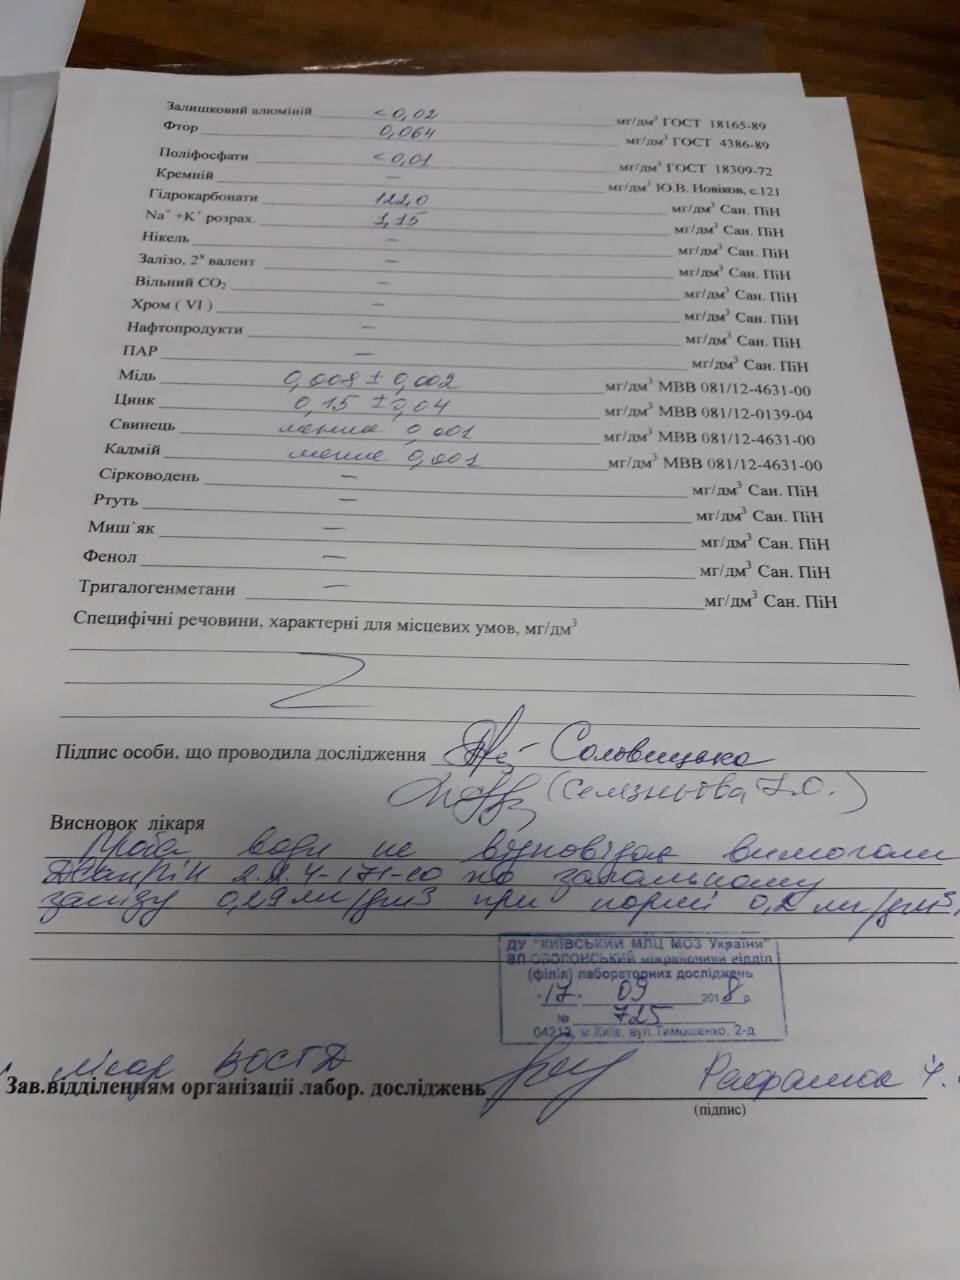 Залишковий алюміній < 0,02 мг/дм³ ГОСТ 18165-89
Фтор 0,064 мг/дм³ ГОСТ 4386-89
Поліфосфати < 0,01 мг/дм³ ГОСТ 18309-72
Кремній — мг/дм³ Ю.В. Новіков, с.121
Гідрокарбонати 122,0 мг/дм³ Сан. ПіН
Na⁺ +K⁺ розрах. 1,15 мг/дм³ Сан. ПіН
Нікель — мг/дм³ Сан. ПіН
Залізо, 2ˣ валент — мг/дм³ Сан. ПіН
Вільний CO₂ — мг/дм³ Сан. ПіН
Хром ( VI ) — мг/дм³ Сан. ПіН
Нафтопродукти — мг/дм³ Сан. ПіН
ПАР — мг/дм³ Сан. ПіН
Мідь 0,008 ± 0,002 мг/дм³ МВВ 081/12-4631-00
Цинк 0,15 ± 0,04 мг/дм³ МВВ 081/12-0139-04
Свинець менше 0,001 мг/дм³ МВВ 081/12-4631-00
Кадмій менше 0,001 мг/дм³ МВВ 081/12-4631-00
Сірководень — мг/дм³ Сан. ПіН
Ртуть — мг/дм³ Сан. ПіН
Миш`як — мг/дм³ Сан. ПіН
Фенол — мг/дм³ Сан. ПіН
Тригалогенметани — мг/дм³ Сан. ПіН
Специфічні речовини, характерні для місцевих умов, мг/дм³
Підпис особи, що проводила дослідження
Висновок лікаря
Проба води не відповідає вимогам
ДСанПіН 2.2.4-171-10 по загальному
залізу 0,29 мг/дм³ при нормі 0,2 мг/дм³.
ДУ "КИЇВСЬКИЙ МЛЦ МОЗ України"
ВП ОБОЛОНСЬКИЙ міжрайонний відділ
(філія) лабораторних досліджень
17. 09 2018 р.
№ 725
04212, м.Київ, вул.Тимошенко, 2-д
лікар
Зав.відділенням організаціі лабор. досліджень
(підпис)